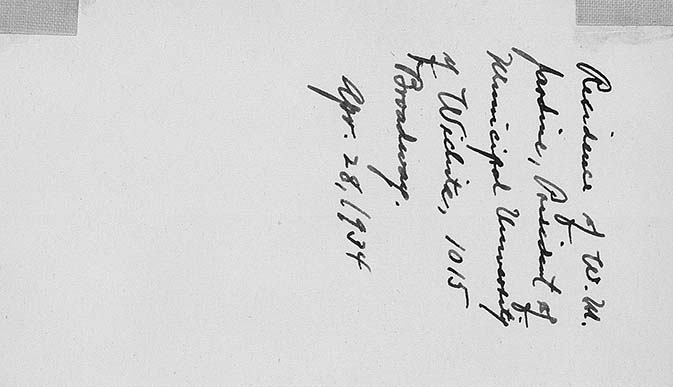 Residence of W. M.
Jardine, President of
Municipal University
of Wichita, 1015
Broadway.
Apr. 28, 1934